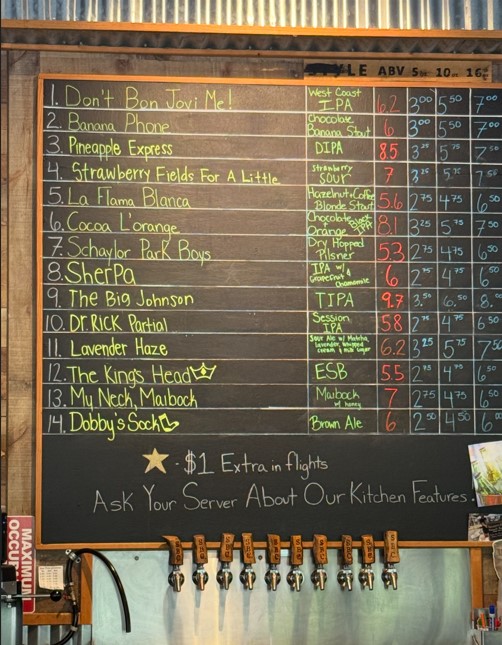 ABV 5oz 10oz 16
1. Don't Bon Jovi Me! West Coast IPA 6.2 3⁰⁰ 5⁵⁰ 7⁰⁰
2. Banana Phone Chocolate Banana Stout 6 3⁰⁰ 5⁵⁰ 7⁰⁰
3. Pineapple Express DIPA 8.5 3²⁵ 5⁷⁵ 7⁵⁰
4. Strawberry Fields For A Little Strawberry Sour 7 3²⁵ 5⁷⁵ 7⁵⁰
5. La Flama Blanca Hazelnut+Coffee Blonde Stout 5.6 2⁷⁵ 4⁷⁵ 6⁵⁰
6. Cocoa L'orange Chocolate Orange Black IPA 8.1 3²⁵ 5⁷⁵ 7⁵⁰
7. Schaylor Park Boys Dry Hopped Pilsner 5.3 2⁷⁵ 4⁷⁵ 6⁵⁰
8. SherPa IPA w/ Grapefruit & Chamomile 6 2⁷⁵ 4⁷⁵ 6⁵⁰
9. The Big Johnson TIPA 9.7 3.⁵⁰ 6.⁵⁰ 8.
10. DR.RICK Partial Session IPA 58 2⁷⁵ 4⁷⁵ 6⁵⁰
11 Lavender Haze Sour Ale w/ Matcha, lavender, whipped cream & milk sugar 6.2 3²⁵ 5⁷⁵ 7⁵⁰
12. The King's Head ESB 5.5 2⁷⁵ 4⁷⁵ 6⁵⁰
13. My Neck, Maibock Maibock w/ honey 7 2⁷⁵ 4⁷⁵ 6⁵⁰
14. Dobby's Sock Brown Ale 6 2⁵⁰ 4⁵⁰ 6⁰⁰
- $1 Extra in flights
Ask Your Server About Our Kitchen Features.
MAXIMUM
OCCUP